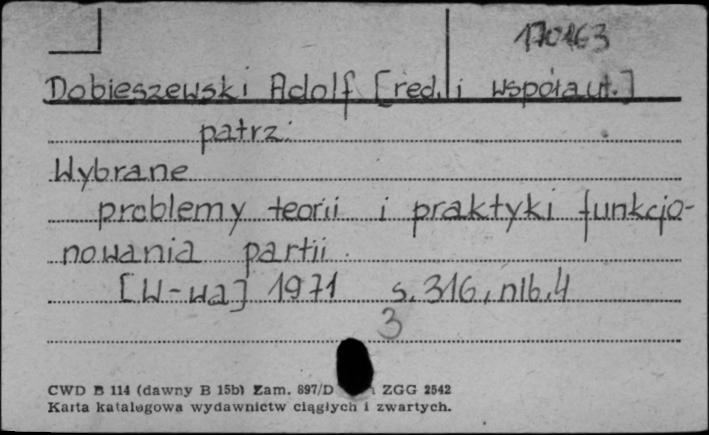 170163
Dobieszewski Adolf [red. i współaut.]
patrz:
Wybrane
problemy teorii i praktyki funkcjo-
nowania partii.
[W-wa] 1971 s. 316, nlb. 4
3
CWD B 114 (dawny B 15b) Zam. 897/D ZGG 2542
Karta katalogowa wydawnictw ciągłych i zwartych.